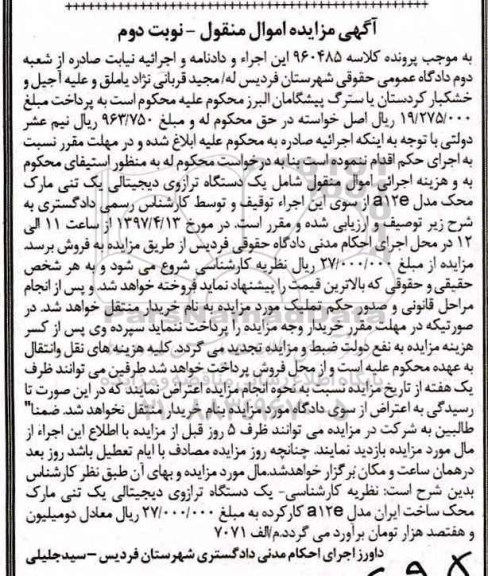 آگهی مزایده اموال منقول - نوبت دوم
به موجب پرونده کلاسه ۹۶۰۴۸۵ این اجراء و دادنامه و اجرائیه نیابت صادره از شعبه
دوم دادگاه عمومی حقوقی شهرستان فردیس له/ مجید قربانی نژاد یاملق و علیه آجیل و
خشکبار کردستان یا سترگ پیشگامان البرز محکوم علیه محکوم است به پرداخت مبلغ
۱۹/۲۷۵/۰۰۰ ریال اصل خواسته در حق محکوم له و مبلغ ۹۶۳/۷۵۰ ریال نیم عشر
دولتی با توجه به اینکه اجرائیه صادره به محکوم علیه ابلاغ شده و در مهلت مقرر نسبت
به اجرای حکم اقدام ننموده است بنا به درخواست محکوم له به منظور استیفای محکوم
به و هزینه اجرائی اموال منقول شامل یک دستگاه ترازوی دیجیتالی یک تنی مارک
محک مدل a۱۲e از سوی این اجراء توقیف و توسط کارشناس رسمی دادگستری به
شرح زیر توصیف و ارزیابی شده و مقرر است. در مورخ ۱۳۹۷/۴/۱۳ از ساعت ۱۱ الی
۱۲ در محل اجرای احکام مدنی دادگاه حقوقی فردیس از طریق مزایده به فروش برسد.
مزایده از مبلغ ۲۷/۰۰۰/۰۰۰ ریال نظریه کارشناسی شروع می شود و به هر شخص
حقیقی و حقوقی که بالاترین قیمت را پیشنهاد نماید فروخته خواهد شد. و پس از انجام
مراحل قانونی و صدور حکم تملیک مورد مزایده به نام خریدار منتقل خواهد شد. در
صورتیکه در مهلت مقرر خریدار وجه مزایده را پرداخت ننماید سپرده وی پس از کسر
هزینه مزایده به نفع دولت ضبط و مزایده تجدید می گردد. کلیه هزینه های نقل وانتقال
به عهده محکوم علیه است و از محل فروش پرداخت خواهد شد طرفین می توانند ظرف
یک هفته از تاریخ مزایده نسبت به نحوه انجام مزایده اعتراض نمایند که در این صورت تا
رسیدگی به اعتراض از سوی دادگاه مورد مزایده بنام خریدار انتقل نخواهد شد. ضمنا"
طالبین به شرکت در مزایده می توانند ظرف ۵ روز قبل از مزایده با اطلاع این اجراء از
مال مورد مزایده بازدید نمایند. چنانچه روز مزایده مصادف با ایام تعطیل باشد روز بعد
در همان ساعت و مکان برگزار خواهد شد. مال مورد مزایده و بهای آن طبق نظر کارشناس
بدین شرح است: نظریه کارشناسی- یک دستگاه ترازوی دیجیتالی یک تنی مارک
محک ساخت ایران مدل a۱۲e کارکرده به مبلغ ۲۷/۰۰۰/۰۰۰ ریال معادل دومیلیون
و هفتصد هزار تومان برآورد می گردد. م/الف ۷۰۷۱
داورز اجرای احکام مدنی دادگستری شهرستان فردیس – سیدجلیلی